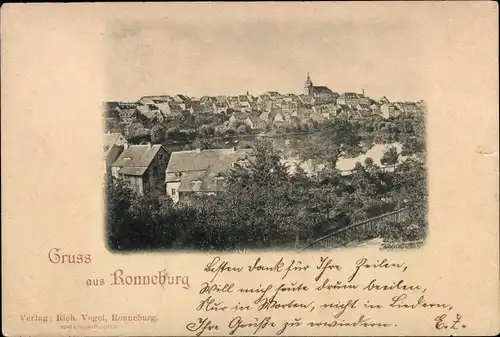 Gruss
aus Ronneburg
Besten Dank für Ihre Zeilen,
Will mich heute drum beeilen,
Nur in Worten, nicht in Liedern,
Ihre Grüße zu erwiedern.
E. Z.
Verlag: Rich. Vogel, Ronneburg.